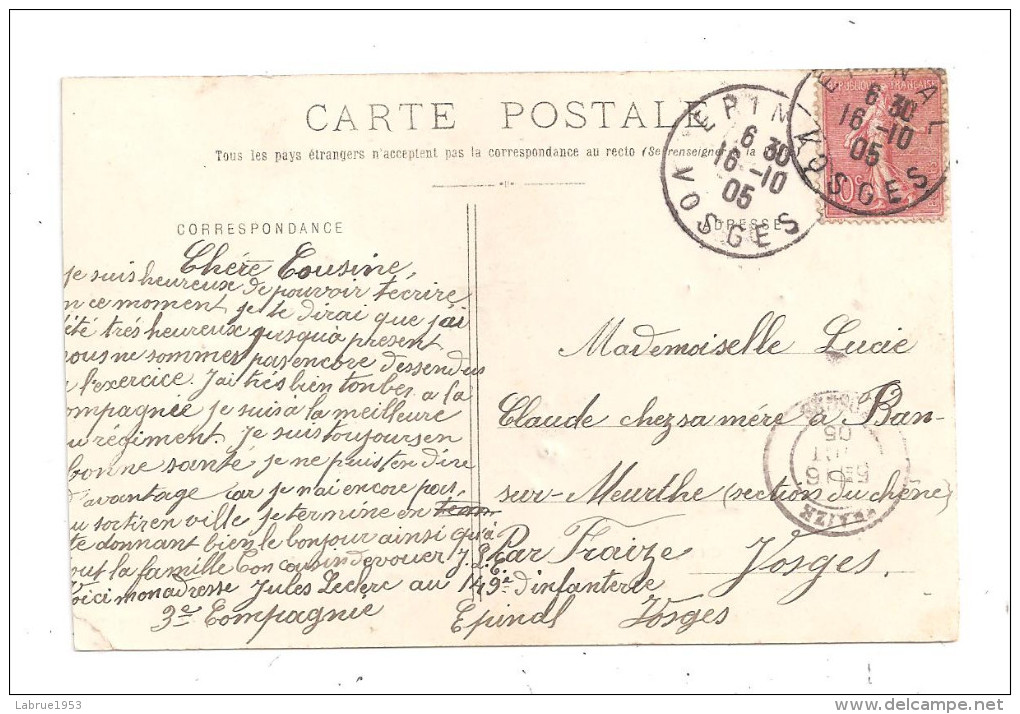 CARTE POSTALE
Tous les pays étrangers n'acceptent pas la correspondance au recto (Se renseigner à la
EPIN
6 30
16 -10
05
VOSGES
EPINAL
6 30
16 -10
05
VOSGES
REPUBLIQUE FRANÇAISE
10c
CORRESPONDANCE
ADRESSE
Chére Cousine
je suis heureux de pouvoir técrire
n ce moment je te dirai que j'ai
été trés heureux jusquà present
nous ne sommes pas encore dessendus
a l'exercice. J'ai trés bien tonber a la
ompagnée je suis à la meilleure
u régiment. Je suis toujours en
bonne santé je ne puis ten dire
d'avantage car je n'ai encore pas
u sortir en ville je termine en
te donnant bien le bonjour ainsi qu'à
out la famille Ton cousin devouer J. L.
oici mon adresse Jules Leclerc au 149e d'infanterie
3e Compagnie Epinal Vosges
Mademoiselle Lucie
Claude chez sa mére à Ban-
sur-Meurthe (section du chêne)
Par Fraize Vosges.
FRAIZE
05
Labrue1953